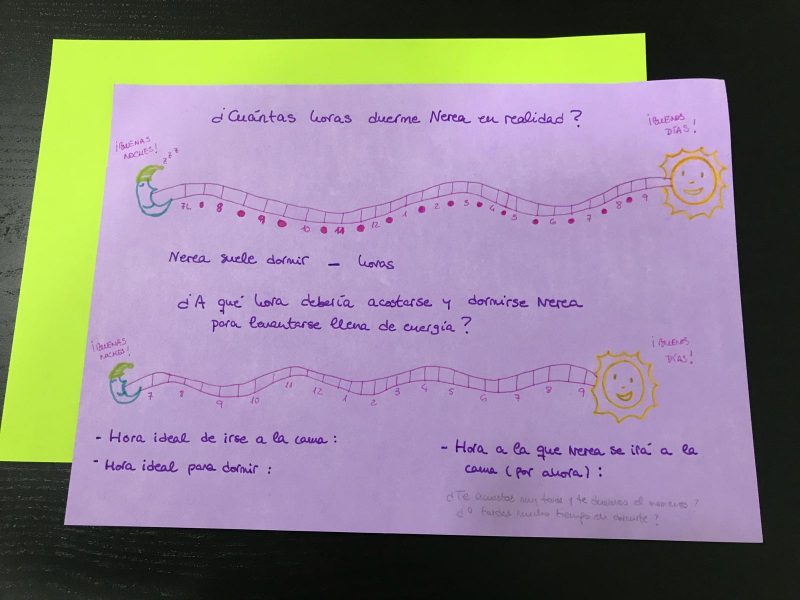 ¿Cuántas horas duerme Nerea en realidad?
¡BUENAS
NOCHES!
zzz
¡BUENOS
DÍAS!
7 8 9 10 11 12 1 2 3 4 5 6 7 8 9
Nerea suele dormir _ horas
¿A qué hora debería acostarse y dormirse Nerea
para levantarse llena de energía?
¡BUENAS
NOCHES!
¡BUENOS
DÍAS!
7 8 9 10 11 12 1 2 3 4 5 6 7 8 9
- Hora ideal de irse a la cama:
- Hora ideal para dormir:
- Hora a la que Nerea se irá a la
cama (por ahora):
¿Te acuestas muy tarde y te duermes al momento?
¿O tardas mucho tiempo en dormirte?